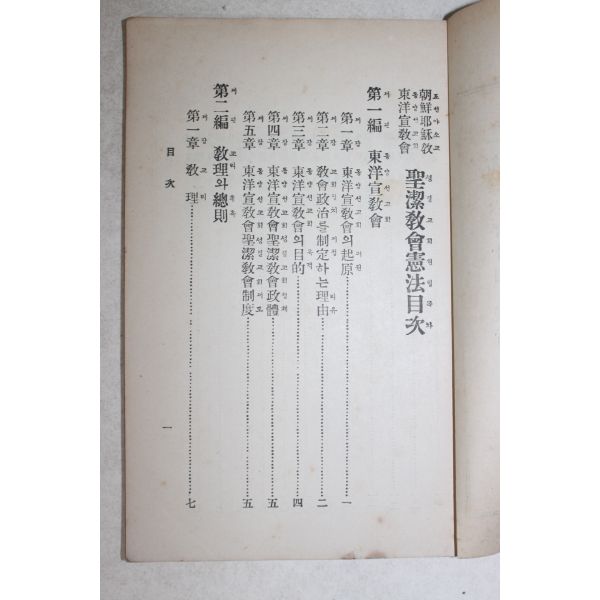 朝鮮耶穌敎
東洋宣敎會
聖潔敎會憲法目次
第一編 東洋宣敎會
第一章 東洋宣敎會의起原 一
第二章 敎會政治를制定하는理由 二
第三章 東洋宣敎會의目的 四
第四章 東洋宣敎會聖潔敎會政體 五
第五章 東洋宣敎會聖潔敎會制度 五
第二編 敎理와總則
第一章 敎理 七
目次
一